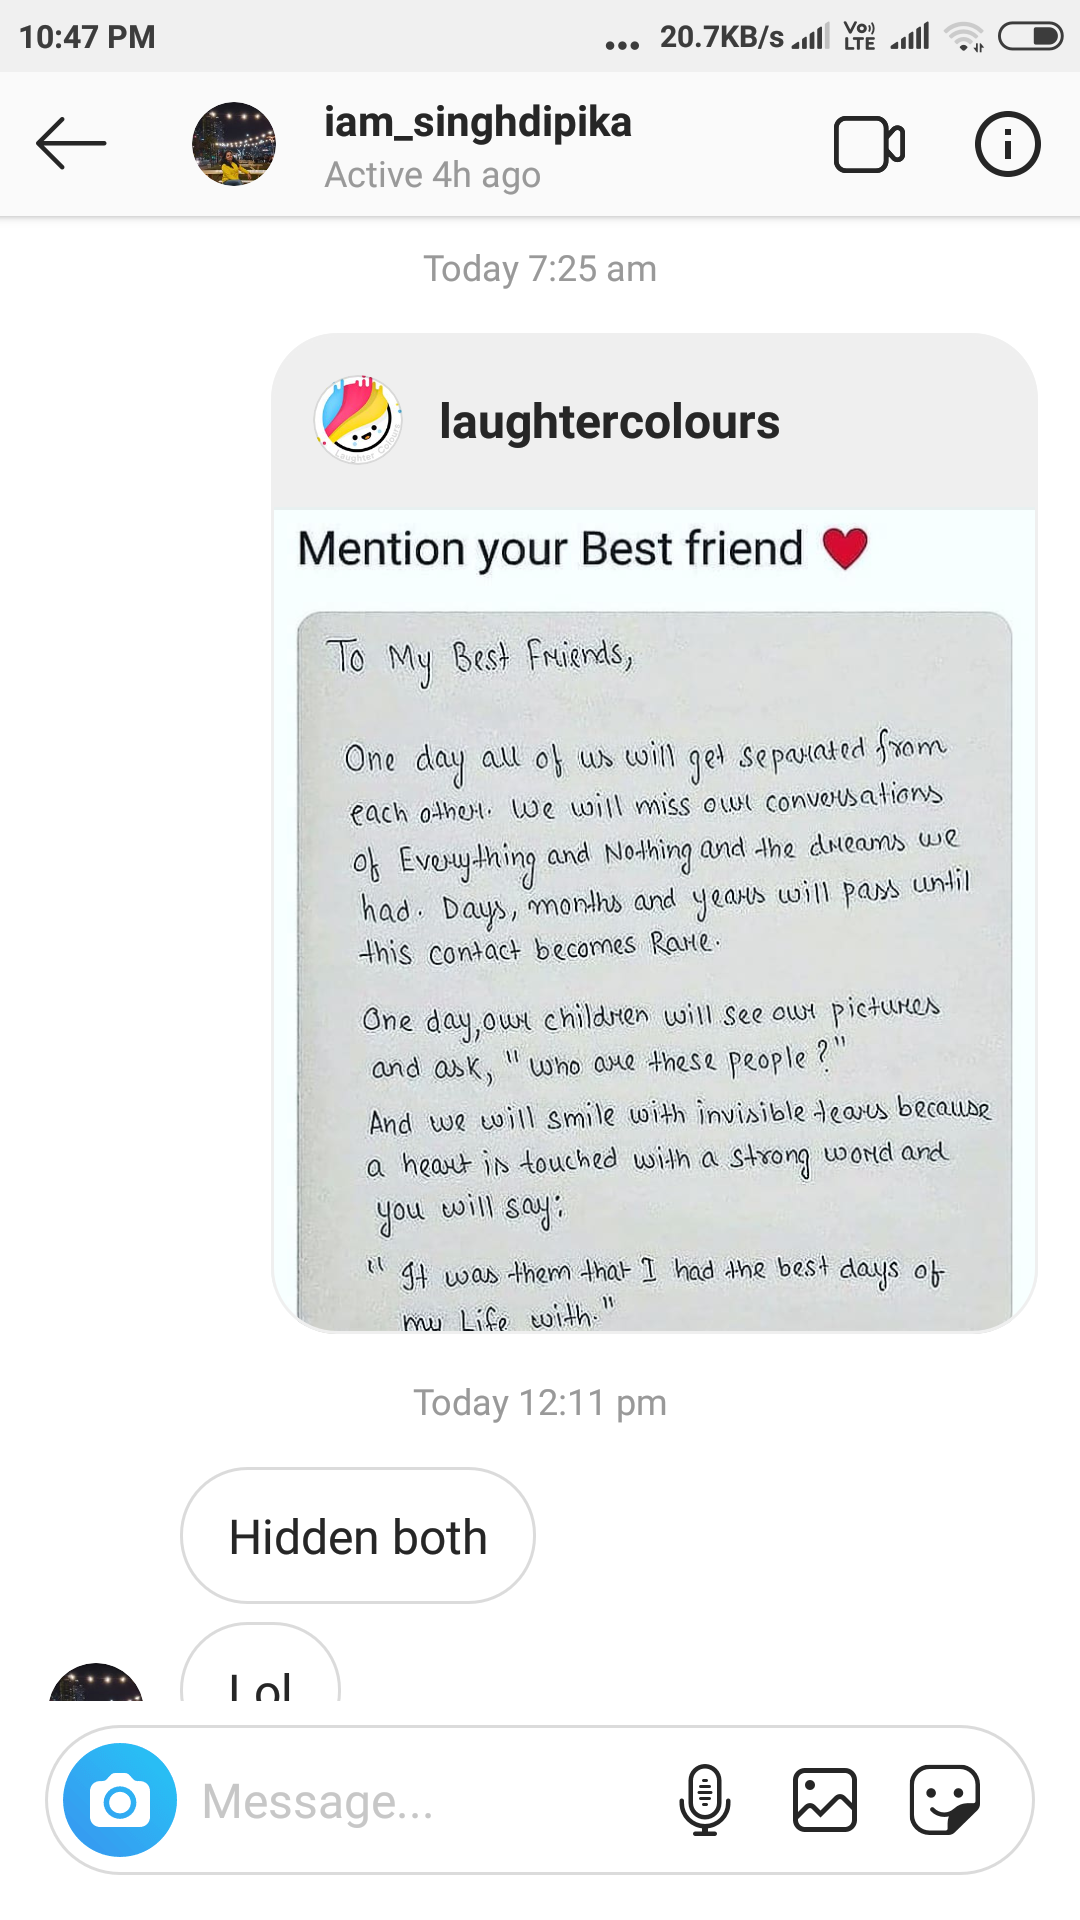 10:47 PM
... 20.7KB/s Vo)) LTE
iam_singhdipika
Active 4h ago
Today 7:25 am
laughtercolours
Mention your Best friend ❤
To My Best Friends,
One day all of us will get separated from
each other. We will miss our conversations
of Everything and Nothing and the dreams we
had. Days, months and years will pass until
this contact becomes Rare.
One day, our children will see our pictures
and ask, "Who are these people?"
And we will smile with invisible tears because
a heart is touched with a strong word and
you will say:
"It was them that I had the best days of
my Life with."
Today 12:11 pm
Hidden both
Lol
Message...